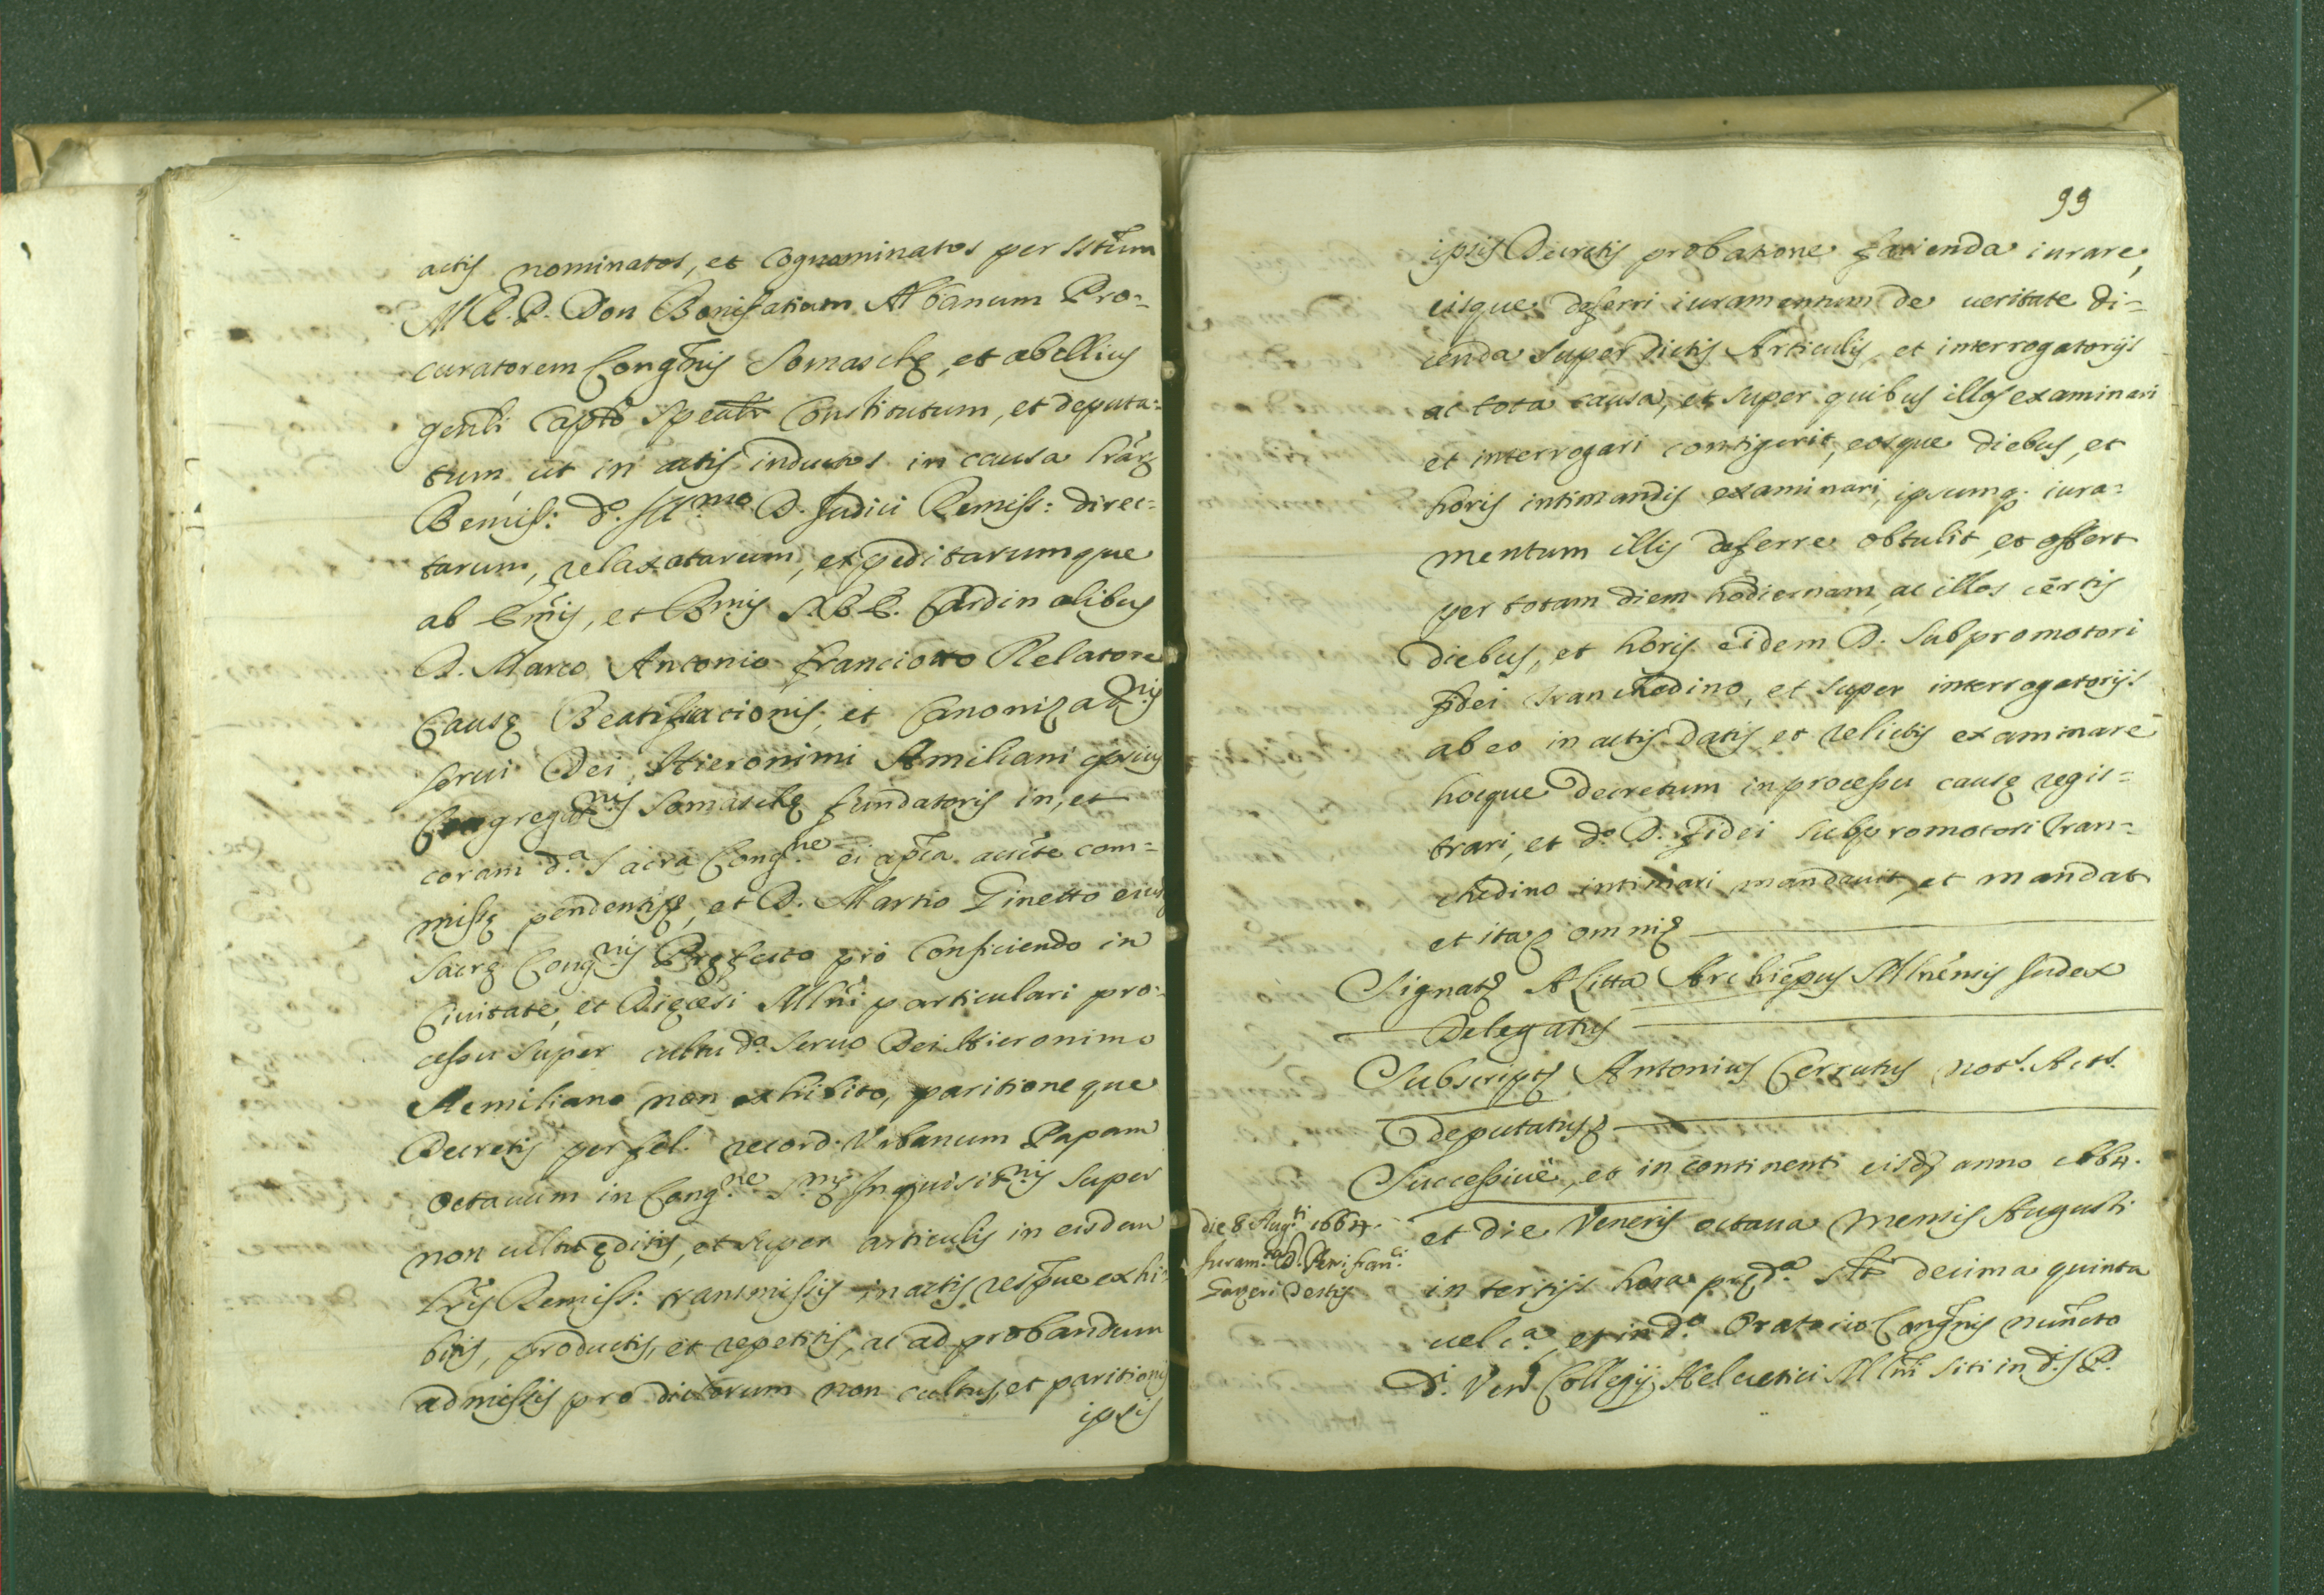 actis nominatos, et cognominatos per sstum
M. R. P. Don Bonifatium Albanum Pro-
curatorem Congnis Somaschę, et ab illius
genli Caplo spealr Constitutum, et deputa-
tum, ut in actis inductos in causa lrar
Remiss: do. Illmo D. Judici Remiss: direc-
tarum, relaxatarum, expeditarumque
ab Emis, et Rmis DD. Cardinalibus
D. Marco Antonio Franciotto Relatore
Causę Beatificationis, et Canonizaonis
Serui Dei Hieronimi Amiliani ipsius
Congregaonis Somaschę fundatoris in, et
coram da. Sacra Congne ei apca aucte com-
missę pendentis, et D. Martio Ginetto eius
Sacrę Congnis Pręfecto pro conficiendo in
Ciuitate, et Diœcesi Mlni particulari pro-
cessu super cultu do. Seruo Dei Hieronimo
Aemiliano non exhibito, paritioneque
Decretis per fel. record. Vrbanum Papam
Octauum in Congne Smę Inquisitnis super
non cultu ęditis, et super articulis in eisdem
lris Remiss: transmissis in actis respue exhi-
bitis, productis, et repetitis, ac ad probandum
admissis pro dictorum non cultus, et paritionis
ipsis
99
ipsis Decretis probatione facienda iurare,
eisque deferri iuramentum de ueritate di-
cenda super dictis Articulis, et interrogatorijs
ac tota causa, et super quibus illos examinari
et interrogari contigerit, eosque diebus, et
horis intimandis examinari, ipsumq. iura-
mentum illis deferre obtulit, et offert
per totam diem hodiernam, ac illos certis
diebus, et horis eidem D. Subpromotori
fidei Tranchedino, et super interrogatorijs
ab eo in actis datis, et relictis examinare
hocque decretum in processu causę regis-
trari, et do. D. fidei Subpromotori Tran-
chedino intimari mandauit, et mandat
et ita omni
Signat A Litta Archiepus Mlnensis Judex
Delegatus
Subscript Antonius Cerrutus nots. Acts.
deputatus
Successiue, et in continenti eisd anno 1664.
die 8 Augti 1664.
Juram.
et die Veneris octaua mensis Augusti
in tertijs hora pręda. st decima quinta
uel ca, et in do. Oratorio Congnis nuncto
di. Ven Collegij Heluetici Mlni siti in d. P.